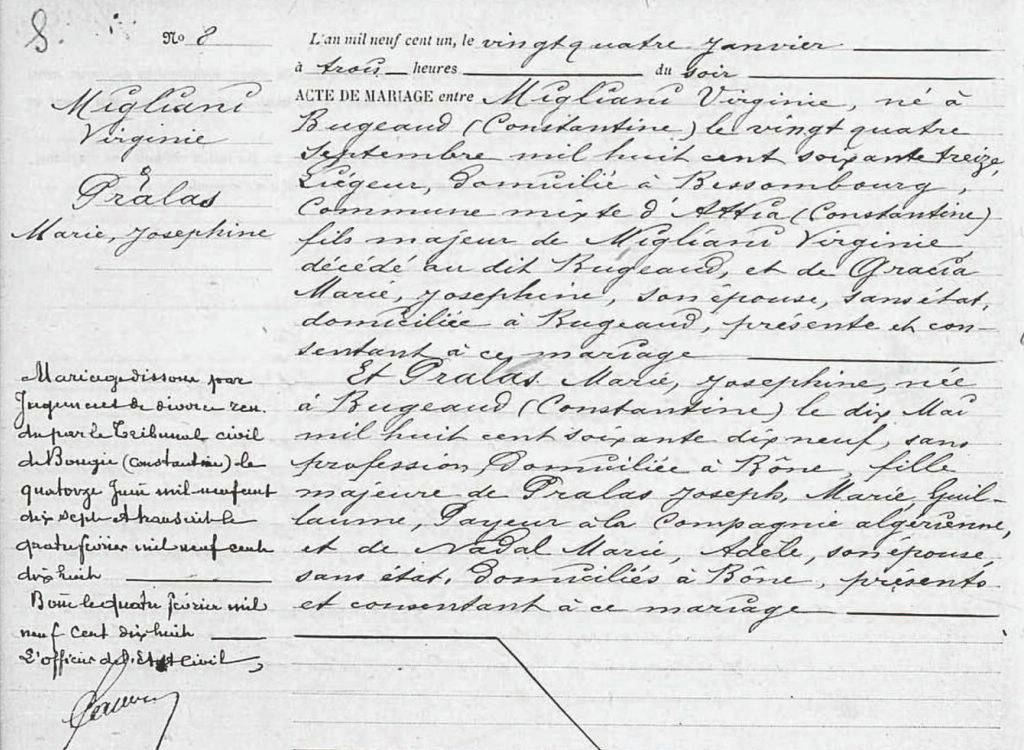 8.
No 8
Migliani
Virginie
&
Pralas
Marie, Josephine
Mariage dissous par
Jugement de divorce ren-
du par le Tribunal civil
de Bougie (Constantine) le
quatorze Juin mil-neuf cent
dix sept. Transcrit le
quatre février mil neuf cent
dix huit
Bône le quatre février mil
neuf cent dix huit
L'officier de l'Etat Civil,
L'an mil neuf cent un, le vingt quatre Janvier
à trois heures du soir
ACTE DE MARIAGE entre Migliani Virginie, né à
Bugeaud (Constantine) le vingt quatre
Septembre mil huit cent soixante treize,
Liégeur, domicilié à Bessombourg,
Commune mixte d'Attia (Constantine)
fils majeur de Migliani Virginie,
décédé au dit Bugeaud, et de Gracia
Marie, Josephine, son épouse, sans état,
domiciliée à Bugeaud, présente et con-
sentant à ce mariage
Et Pralas Marie, Josephine, née
à Bugeaud (Constantine) le dix Mai
mil huit cent soixante dix neuf, sans
profession, domiciliée à Bône, fille
majeure de Pralas Joseph, Marie, Guil-
laume, Payeur à la Compagnie algérienne,
et de Nadal Marie, Adèle, son épouse,
sans état, domiciliés à Bône, présents
et consentant à ce mariage